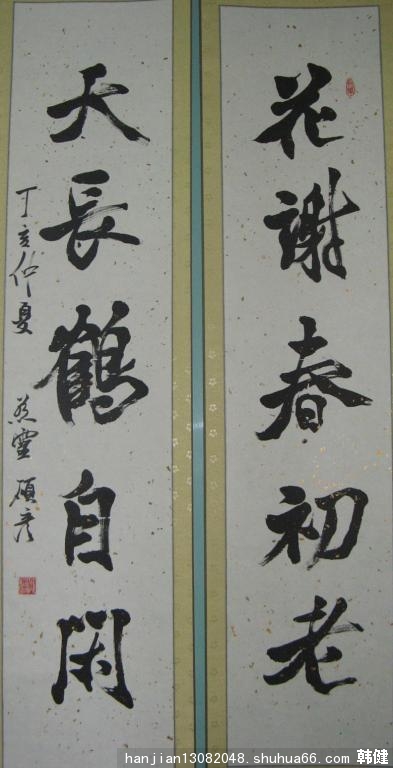 花謝春初老
天長鶴自閑
丁亥仲夏
hanjian13082048.shuhua66.com 韩健